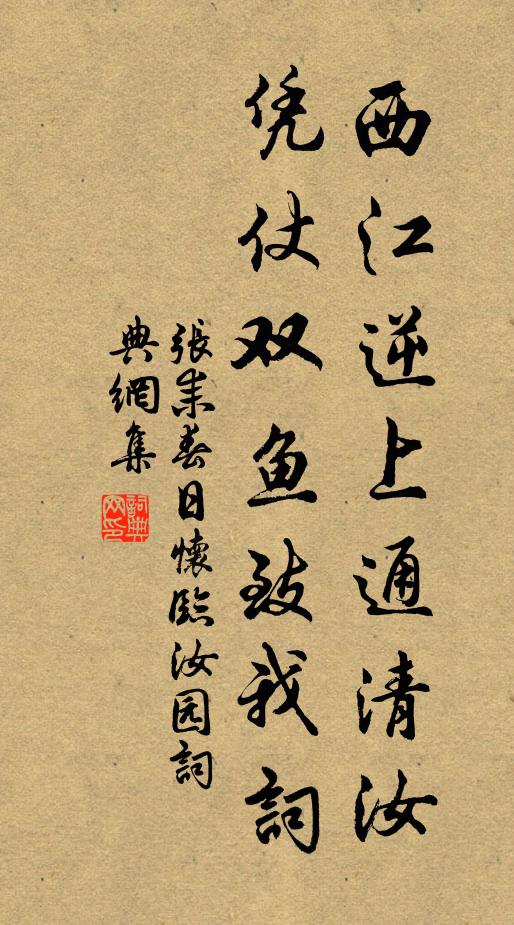 西江逆上通清汝
凭仗双鱼致我詞
張耒春日懷臨汝园詞
典網集
詞典網印